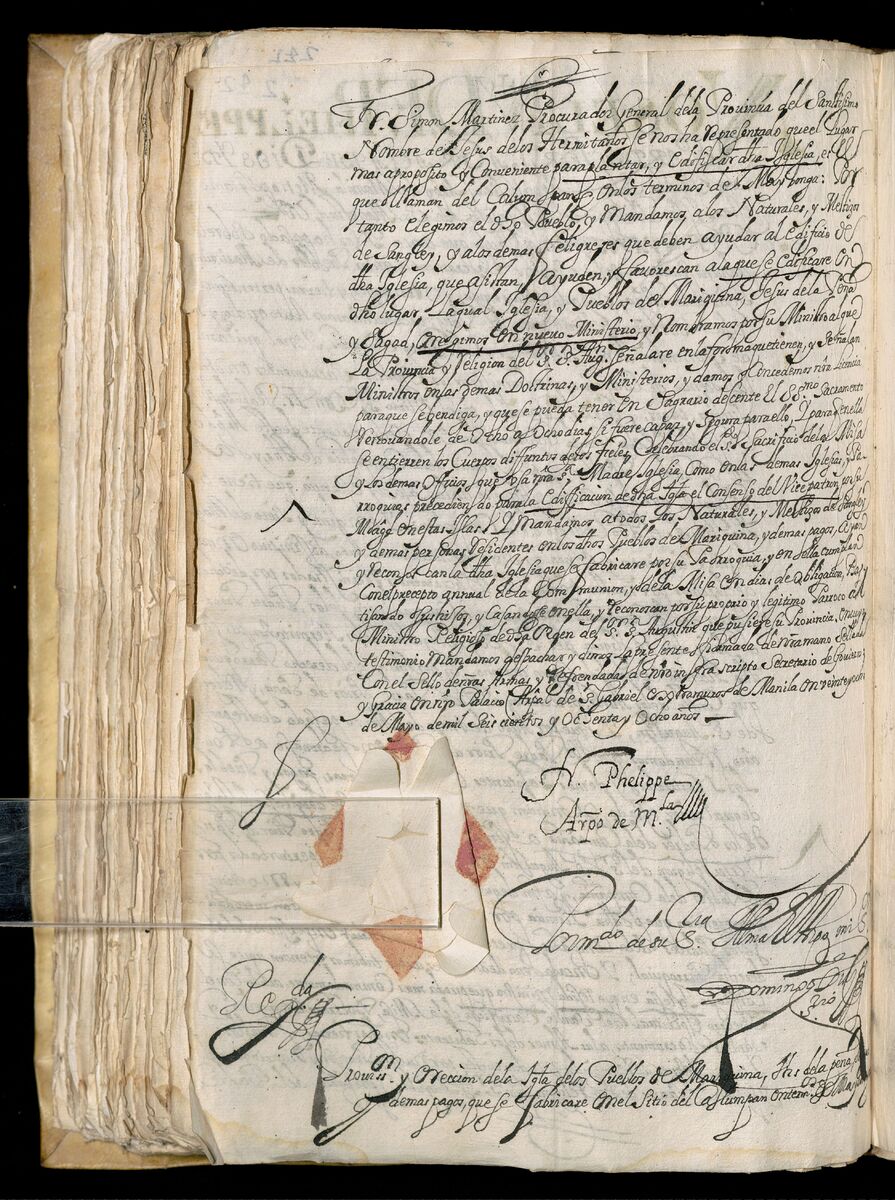 241
242
Fr. Simon Martinez Procurador General dela Provinçia del Santissimo
Nombre de Jesus delos Hermitaños se nos ha representado que el Lugar
mas aproposito y Conveniente para plantar, y Edificar dha Iglesia, es El
que llaman del Calumpang en los terminos de Maybonga: Por
tanto elegimos el dho Pueblo, y Mandamos alos Naturales, y Mestizos
de Sangley, y alos demas feligreses que deben ayudar al Edificio de
dha Iglesia, que asistan, ayuden, y favorescan ala que se Edificare En
dho lugar, Laqual Iglesia, y Pueblos de Mariquina, Jesus dela Peña
y Pagad, erigimos en nuevo Ministerio, y Nombramos por su Ministro al que
La Provincia y Religion del S. P. Aug. señalare en la forma que tienen, y señalan
Ministros en las demas Doctrinas, y Ministerios, y damos y Concedemos nra Licencia
para que se bendiga, y que se pueda tener En Sagrario decente El SSmo Sacramento
renovandole de Ocho a Ocho dias, si fuere capaz, y segura para ello, y para que en ella
se entierren los Cuerpos difuntos delos fieles Celebrando el Sto Sacrificio dela Misa
y los demas Officios que usa nra Sta Madre Iglesia, Como en las demas Iglesias, y Pa
rroquias precediendo para la Edificacion de dha Igla el Consenso del Vice patron por su
Magd en estas Islas. Y Mandamos a todos los Naturales, y Mestizos de Sangley
y demas personas residentes en los dhos Pueblos de Mariquina, y demas pagos, ayan
y reconoscan la dha Iglesia que se fabricare por su Parroquia, y en ella cumplan
Con el precepto annual de la Communion, y dela Misa en dias de obligacion, Bap
tisando sus hijos, y Casandose en ella, y reconoscan por su proprio y legitimo Parroco al
Ministro Religioso de dha Orden del S. P. Augustin que pusiere su Provincia. En cuyo
testimonio Mandamos despachar y dimos la presente firmada de nra mano Sellada
Con el Sello de nras Armas y refrendada de nro infra scripto Secretario de Govierno
y Gracia en nro Palacio Arpal de S. Gabriel extramuros de Manila en veinte y
de Mayo de mil Seis cientos y Ochenta y Ocho años
Fr. Phelippe
Arpo de Mla
Por mdo de su Sra Illma el Arpo mi Sr
Domingo
Srio
Rda
Provisn y ereccion dela Igla delos Pueblos de Mariquina, Jhs dela peña
y demas pagos, que se fabricare en el Sitio del Calumpan